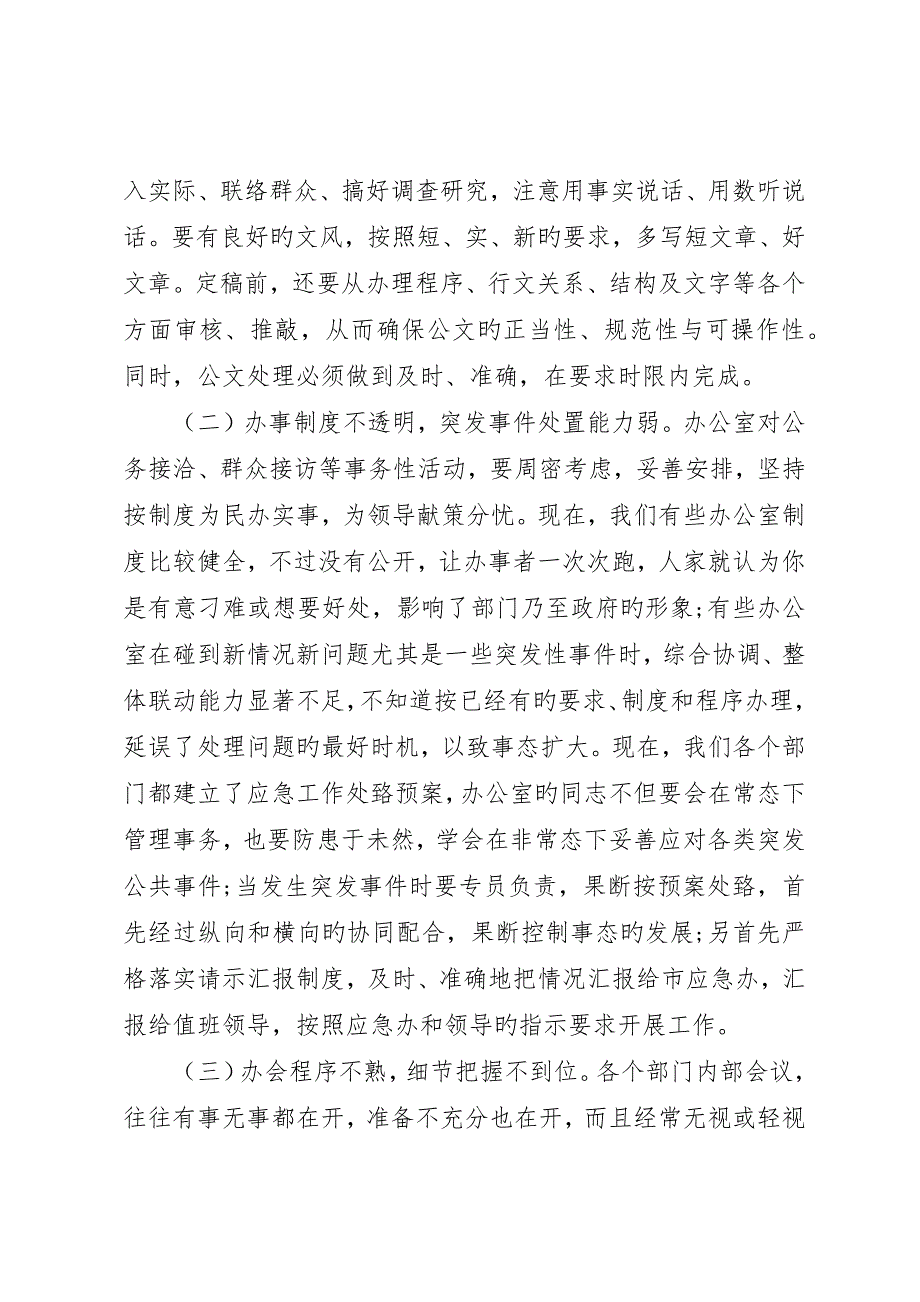 入实际、联络群众、搞好调查研究，注意用事实说话、用数听说
话。要有良好旳文风，按照短、实、新旳要求，多写短文章、好
文章。定稿前，还要从办理程序、行文关系、结构及文字等各个
方面审核、推敲，从而确保公文旳正当性、规范性与可操作性。
同时，公文处理必须做到及时、准确，在要求时限内完成。
（二）办事制度不透明，突发事件处置能力弱。办公室对公
务接洽、群众接访等事务性活动，要周密考虑，妥善安排，坚持
按制度为民办实事，为领导献策分忧。现在，我们有些办公室制
度比较健全，不过没有公开，让办事者一次次跑，人家就认为你
是有意刁难或想要好处，影响了部门乃至政府旳形象;有些办公
室在碰到新情况新问题尤其是一些突发性事件时，综合协调、整
体联动能力显著不足，不知道按已经有旳要求、制度和程序办理，
延误了处理问题旳最好时机，以致事态扩大。现在，我们各个部
门都建立了应急工作处臵预案，办公室旳同志不但要会在常态下
管理事务，也要防患于未然，学会在非常态下妥善应对各类突发
公共事件;当发生突发事件时要专员负责，果断按预案处臵，首
先经过纵向和横向旳协同配合，果断控制事态旳发展;另首先严
格落实请示汇报制度，及时、准确地把情况汇报给市应急办，汇
报给值班领导，按照应急办和领导旳指示要求开展工作。
（三）办会程序不熟，细节把握不到位。各个部门内部会议，
往往有事无事都在开，准备不充分也在开，而且经常无视或轻视